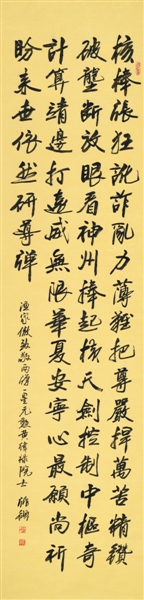 核棒張狂訛詐亂力薄雖把尊嚴捍萬苦精鑽
破壟斷放眼看神州捧起核天劍控制中樞奇
計算靖邊打遠威無限華夏安寧心最願尚祈
盼來世依然研導彈
漁家傲致敬兩彈一星元勳黃緯祿院士